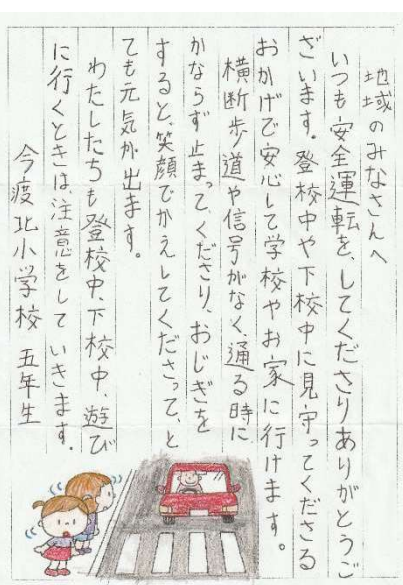 地域のみなさんへ
いつも安全運転を、してくださりありがとうご
ざいます。登校中や下校中に見守ってくださる
おかげで安心して学校やお家に行けます。
横断歩道や信号がなく、通る時に
かならず止まって、くださり、おじぎを
すると、笑顔でかえしてくださって、と
ても元気が出ます。
わたしたちも登校中、下校中、遊び
に行くときは、注意をして いきます。
今渡北小学校 五年生